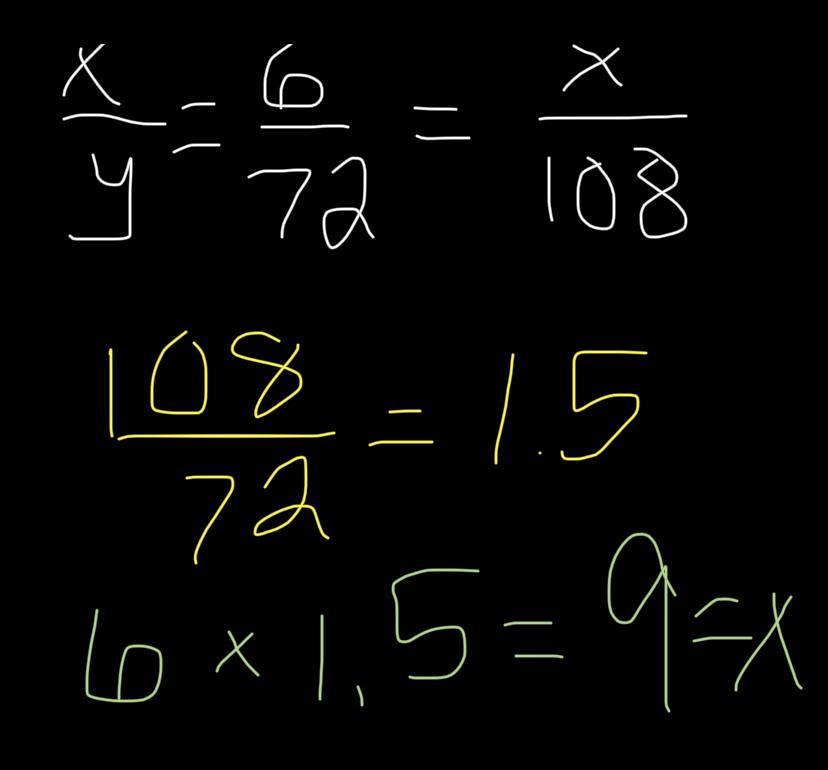 x/y = 6/72 = x/108
108/72 = 1.5
6 × 1.5 = 9 = x